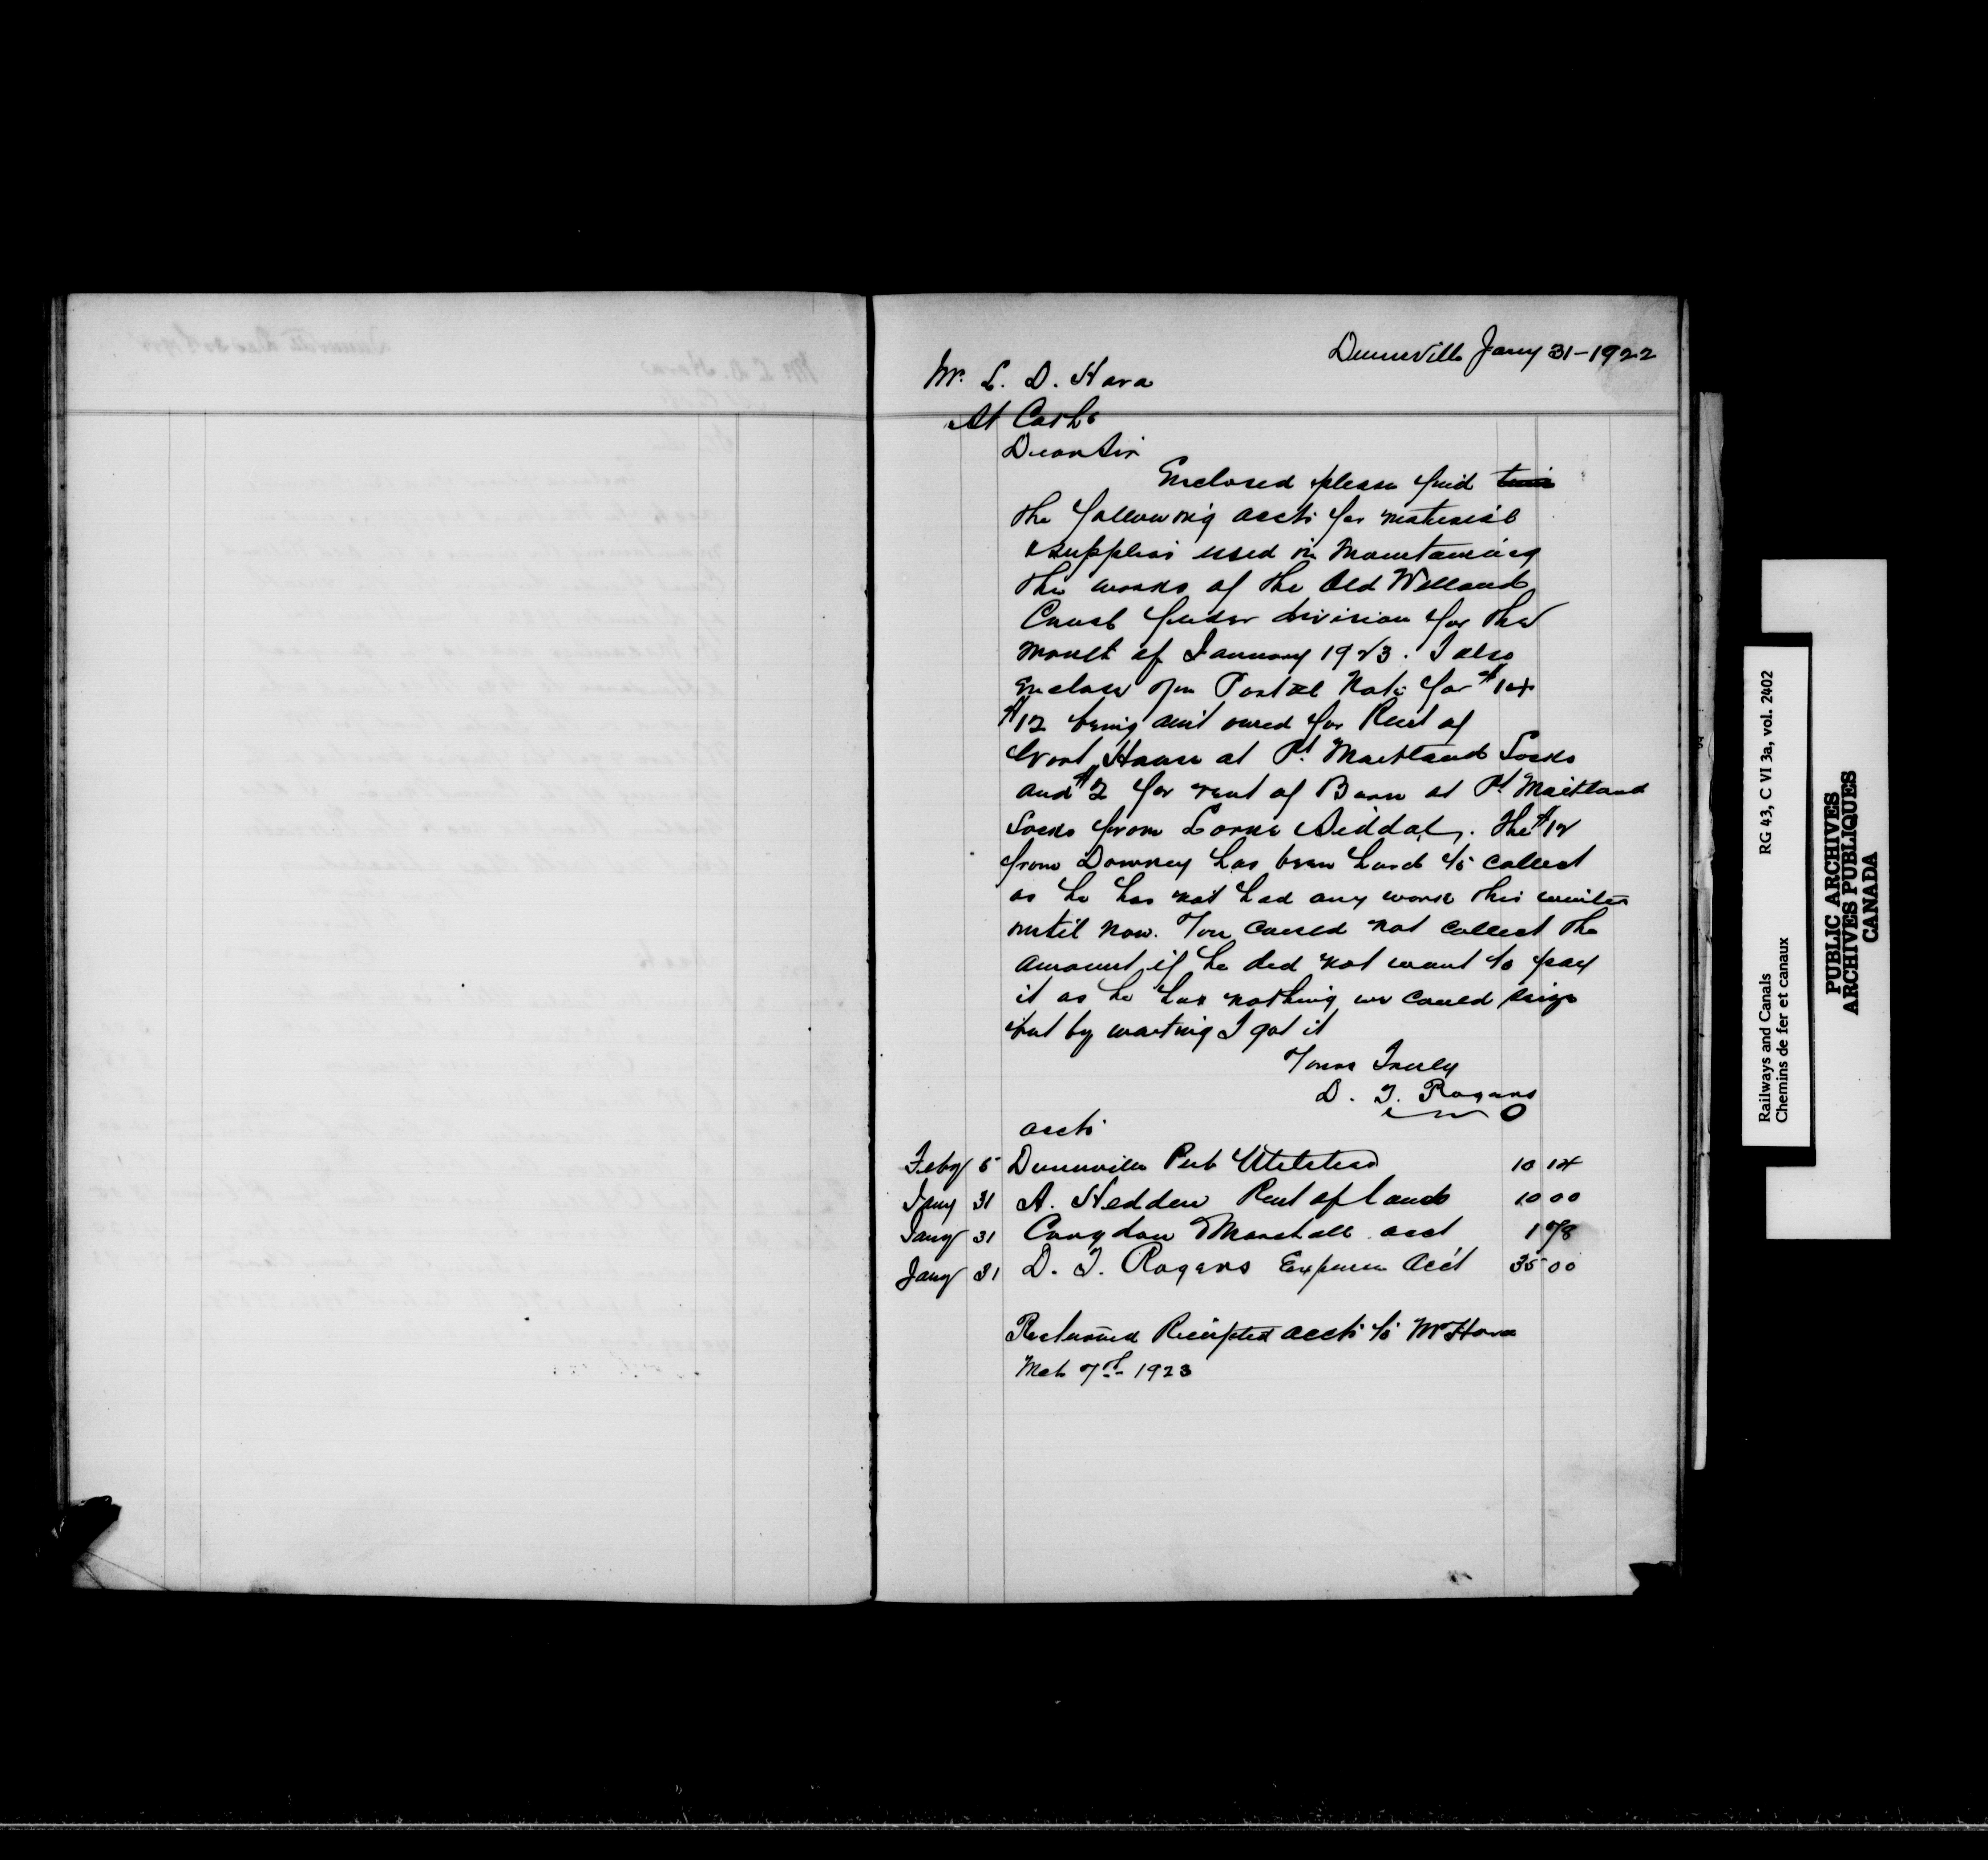 Dunnville Jany 31-1922
Mr. L. D. Hara
St Caths
Dear Sir
Enclosed please find
the following accts for material
& supplies used in Maintaining
the works of the Old Welland
Canal feeder division for the
month of January 1923. I also
Enclose you Postal Note for $14
$12 being am't owed for Rent of
House at Pt Maitland Locks
and $2 for rent of Barn at Pt Maitland
Locks from Lorne Siddal. The $12
from Downey has been hard to collect
as he has not had any work this winter
until now. You could not collect the
amount if he did not want to pay
it as he has nothing we could seize
but by waiting I got it
Yours Truly
D. T. Rogers
accts
Feby 5 Dunnville Pub 10 14
Jany 31 A. Hedden Rent of land 10 00
Jany 31 Congdon Marshall acct 1 78
Jany 31 D. T. Rogers Expense Acct 35 00
Returned Receipted accts to Mr Hara
Mch 7th 1923
Railways and Canals
Chemins de fer et canaux
RG 43, C VI 3a, vol. 2402
PUBLIC ARCHIVES
ARCHIVES PUBLIQUES
CANADA